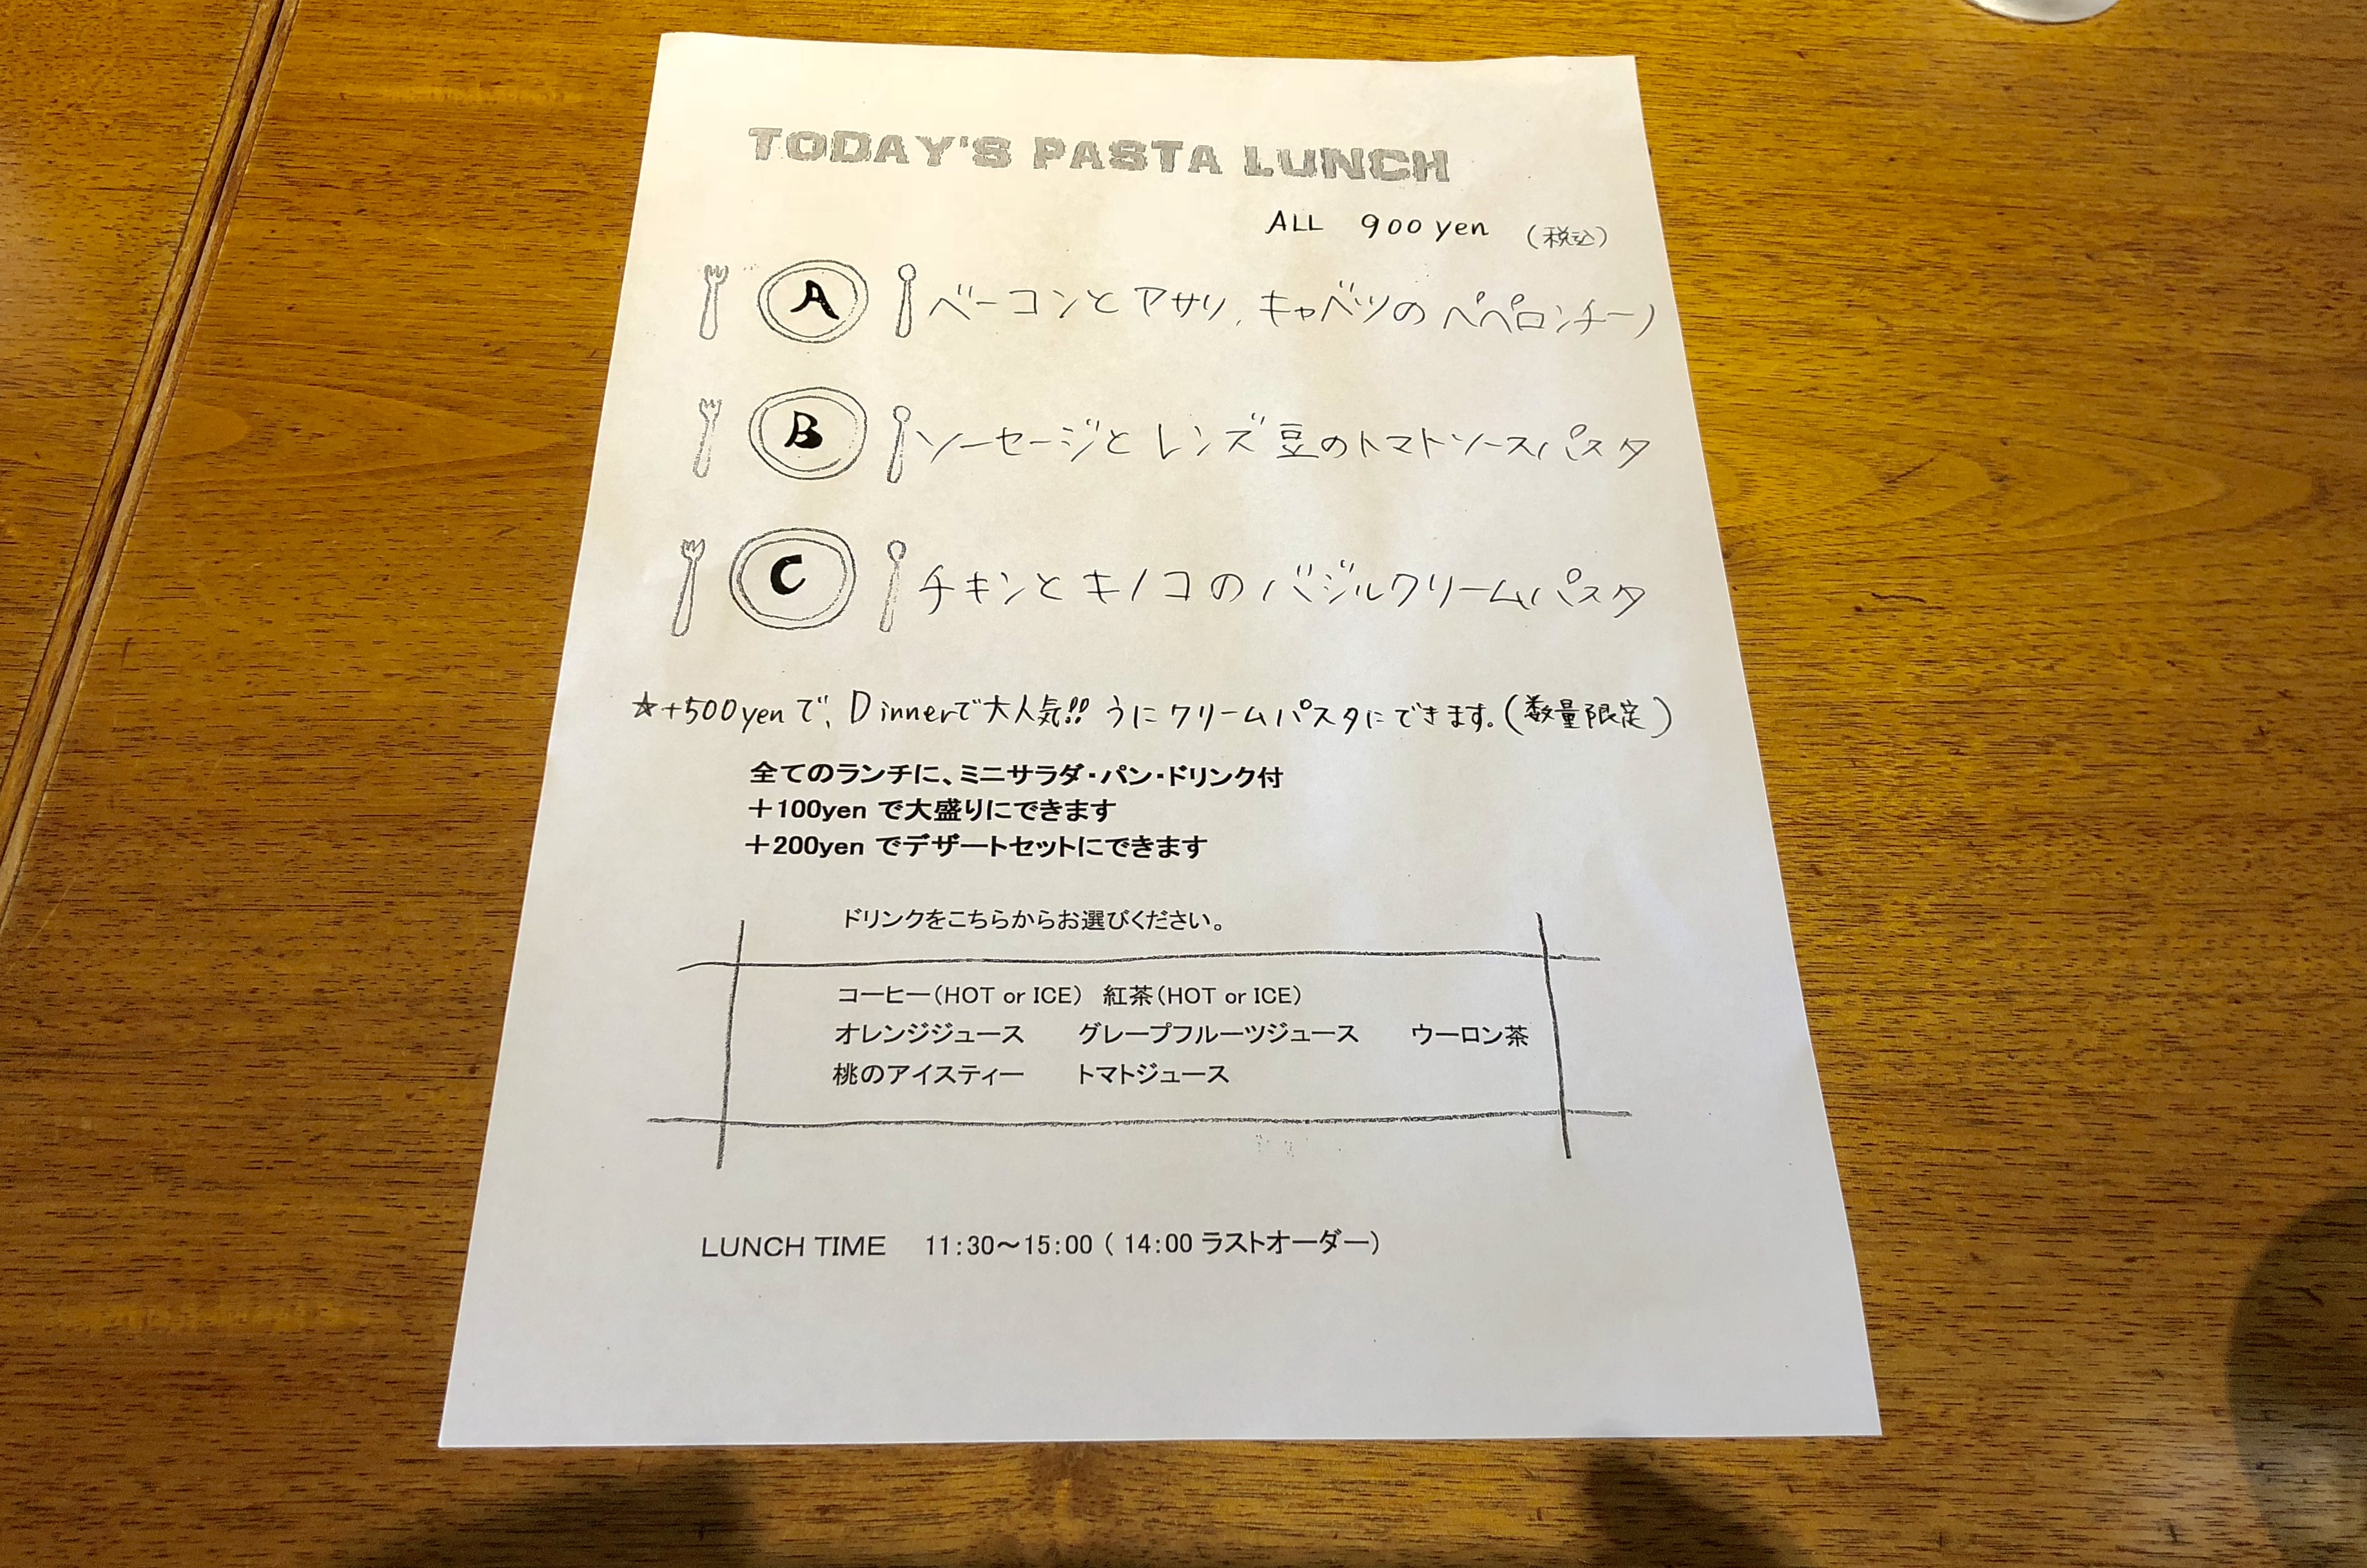 TODAY'S PASTA LUNCH
ALL 900 yen (税込)
A ベーコンとアサリ、キャベツのペペロンチーノ
B ソーセージとレンズ豆のトマトソースパスタ
C チキンとキノコのバジルクリームパスタ
☆+500yenで、Dinnerで大人気!! うにクリームパスタにできます。(数量限定)
全てのランチに、ミニサラダ・パン・ドリンク付
＋100yen で大盛りにできます
＋200yen でデザートセットにできます
ドリンクをこちらからお選びください。
コーヒー(HOT or ICE) 紅茶(HOT or ICE)
オレンジジュース グレープフルーツジュース ウーロン茶
桃のアイスティー トマトジュース
LUNCH TIME 11:30～15:00 ( 14:00 ラストオーダー)